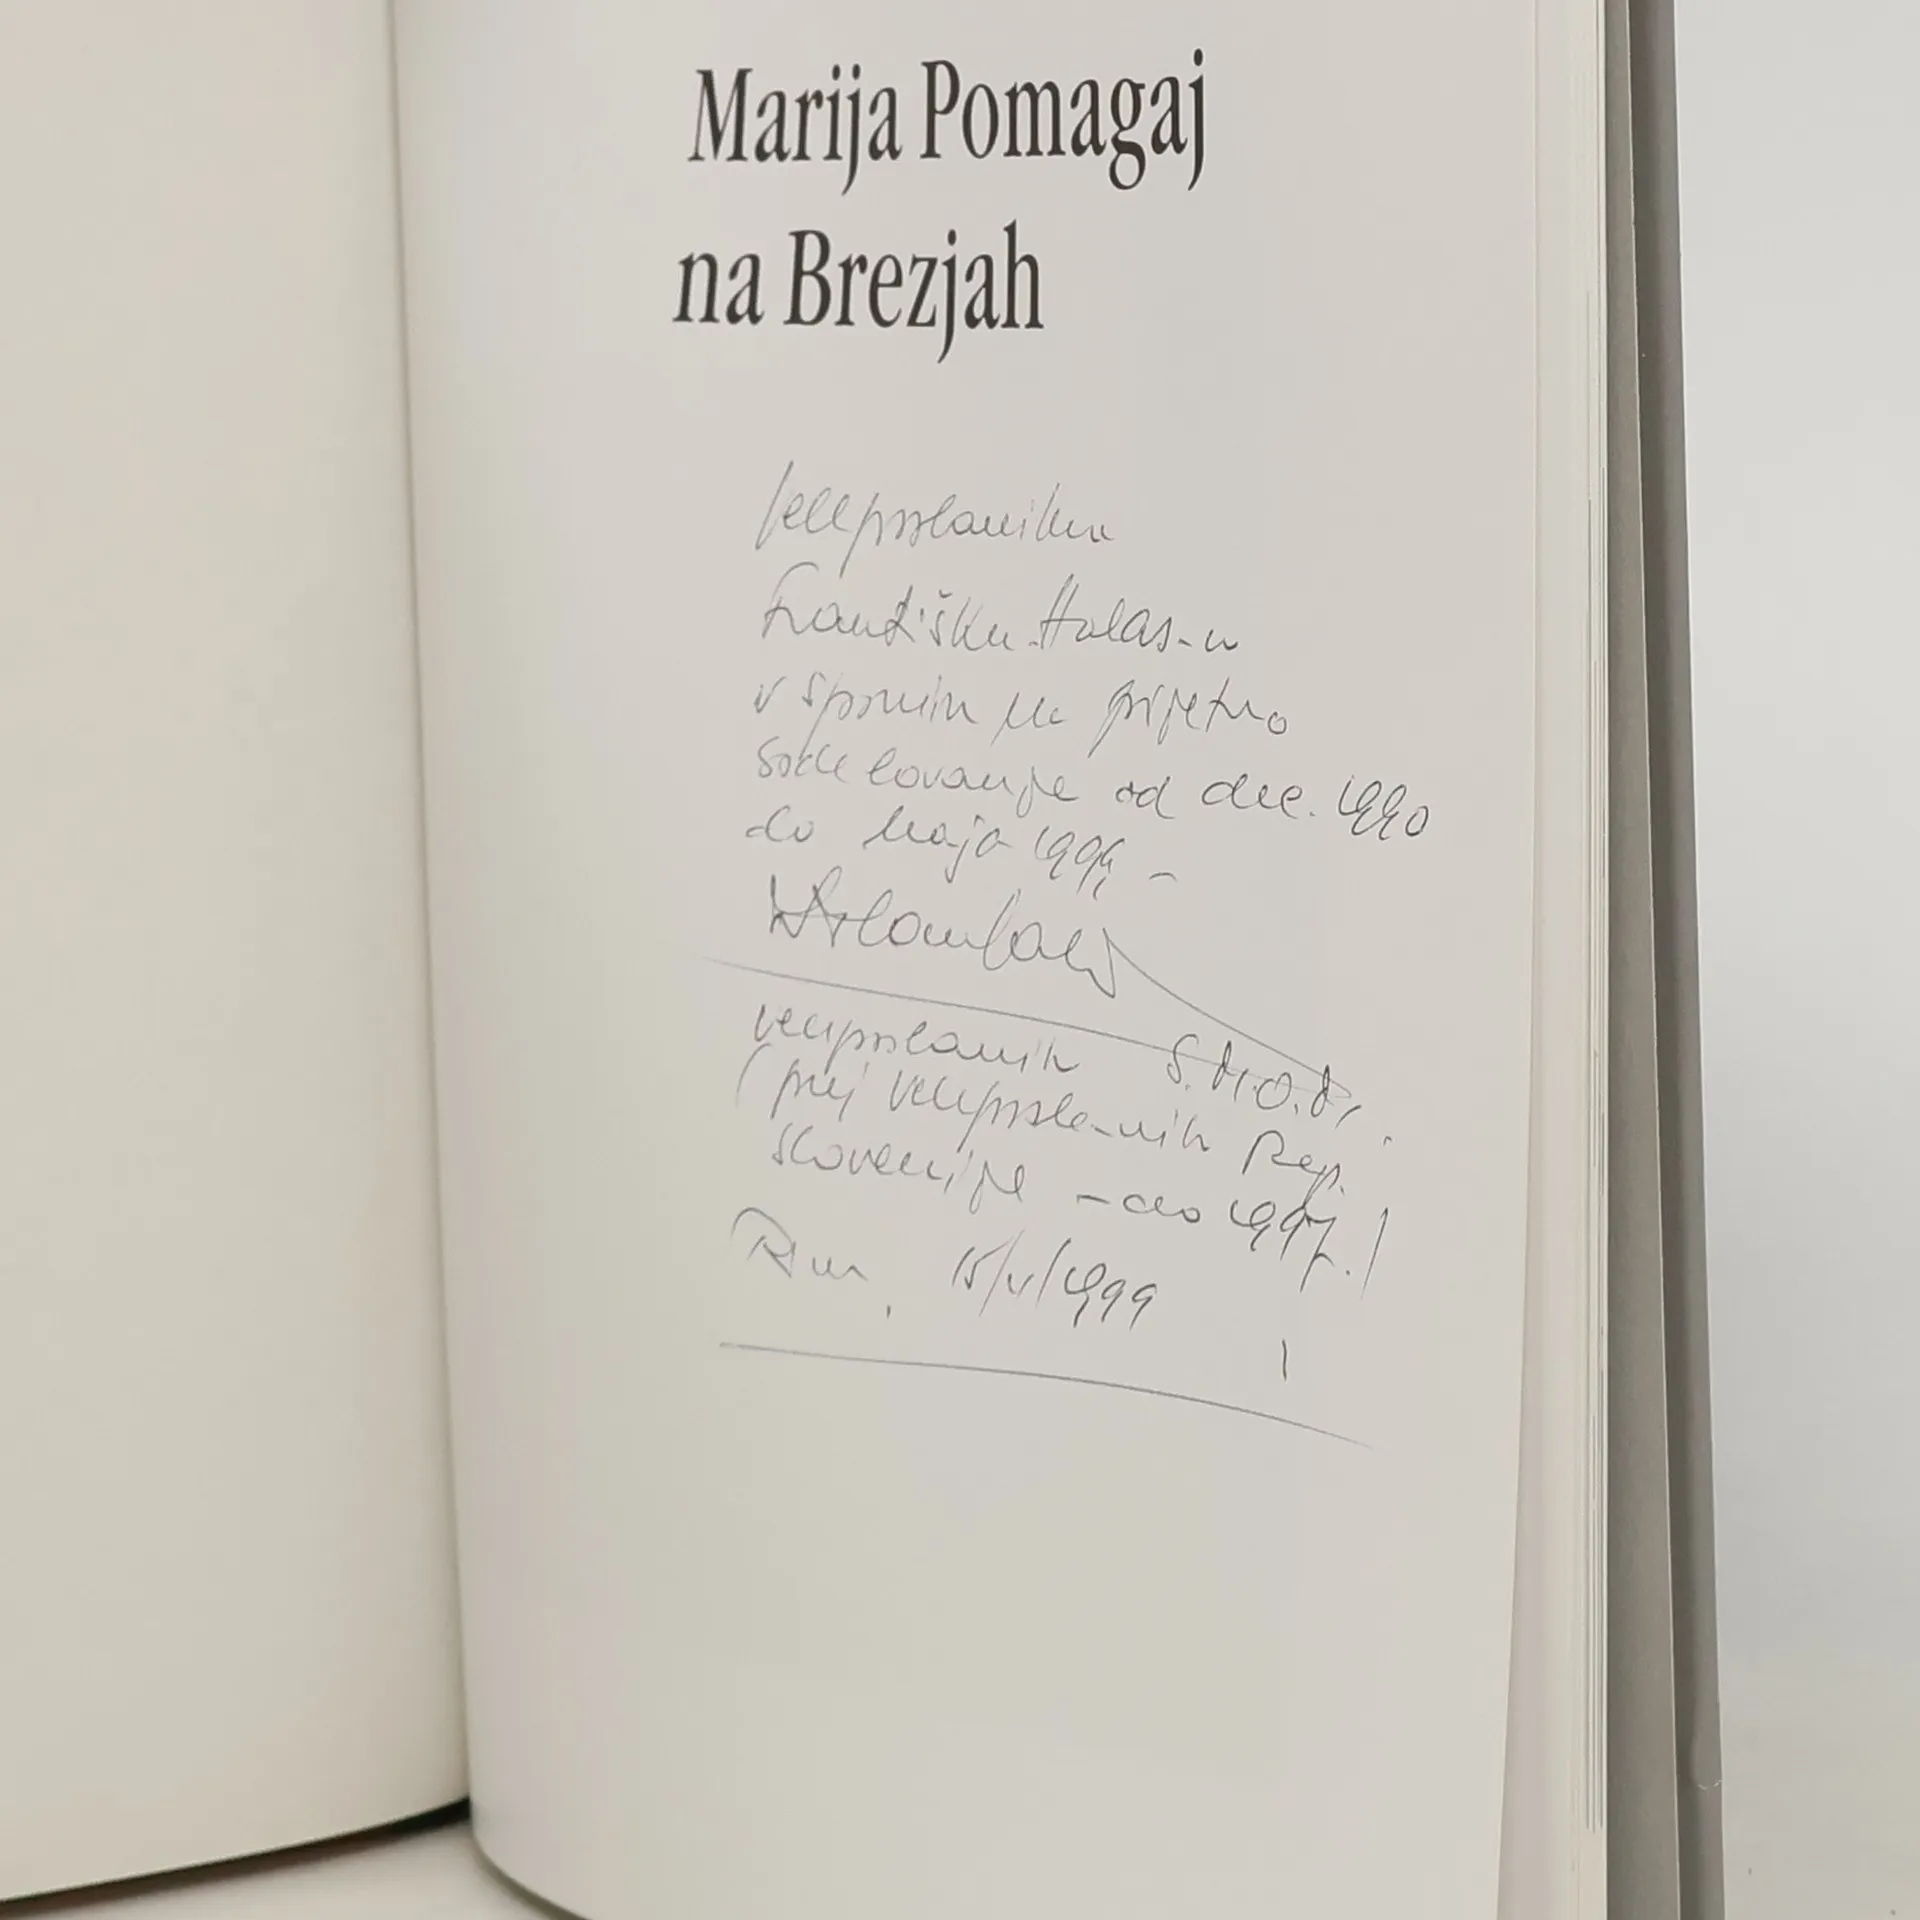 Marija Pomagaj
na Brezjah
Veleposlaniku
Františku Halas-u
v spomin na prijetno
sodelovanje od dec. 1990
do maja 199
veleposlanik S.M.O.M.
(prej veleposlanik Rep.
Slovenije - do 1997.)
Rim, 15/V/1999